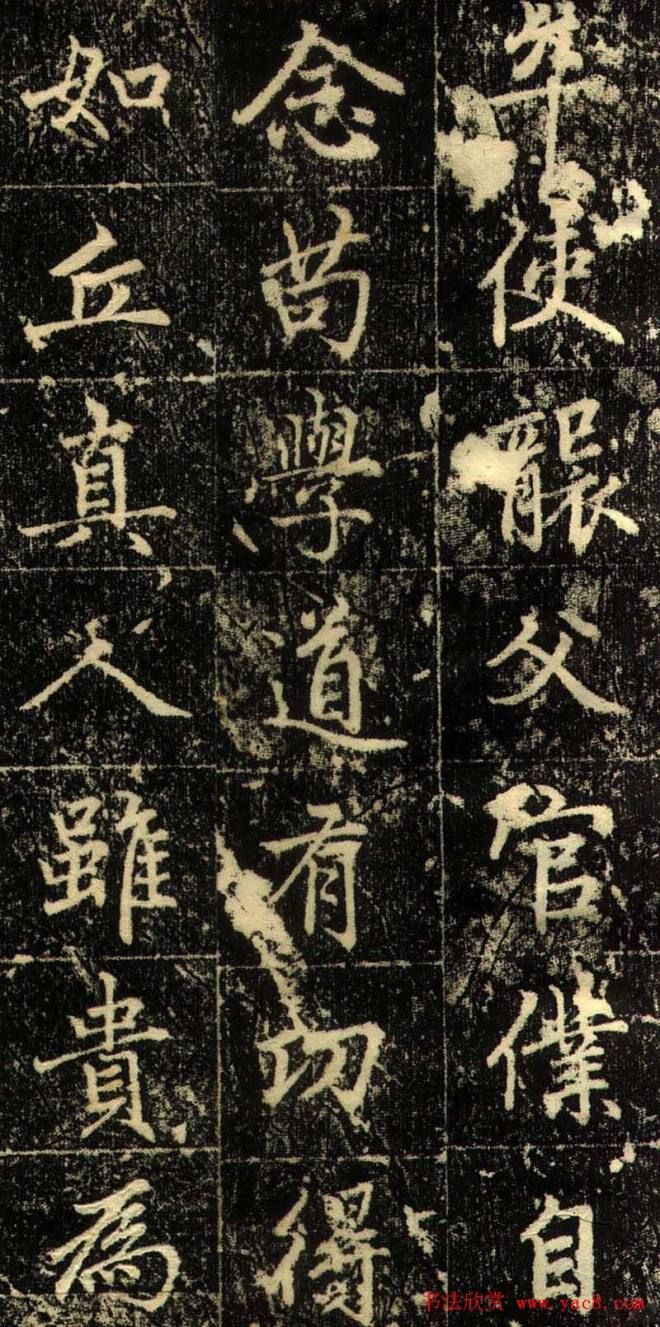 使襲父官僕自
念苟學道有功得
如丘真人雖貴為
书法欣赏 www.yac8.com